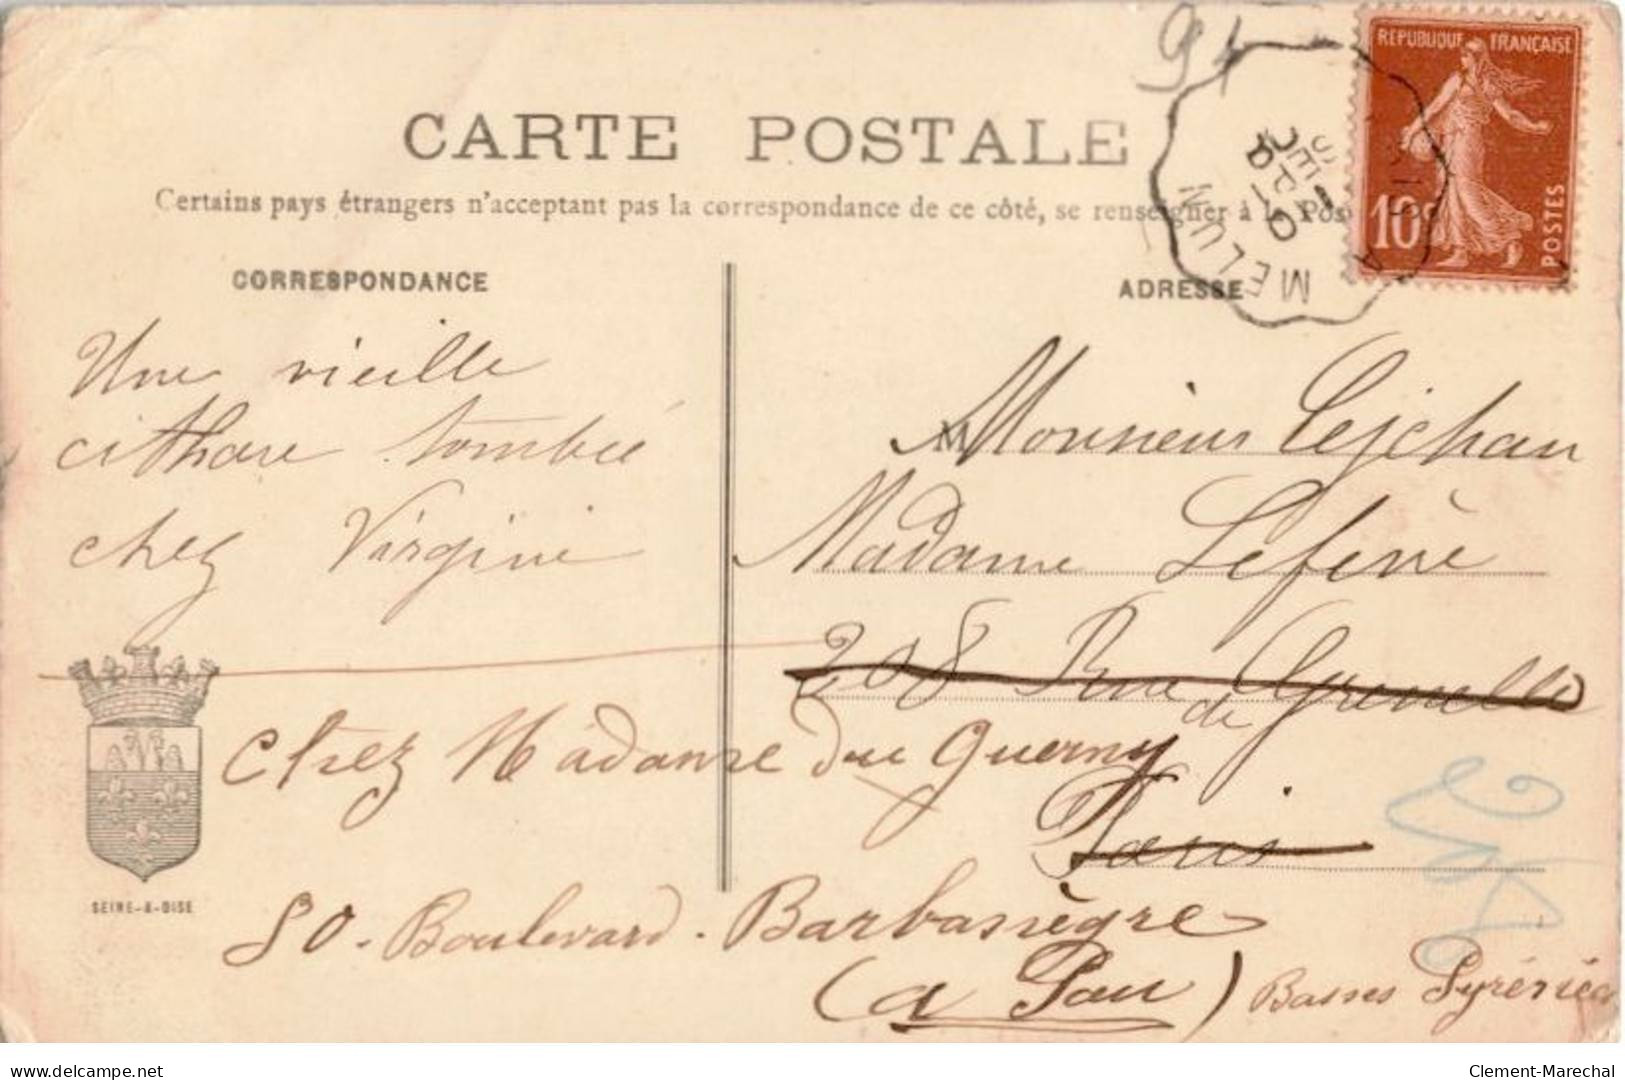 91
CARTE POSTALE
REPUBLIQUE FRANÇAISE
10c
POSTES
MELUN
Certains pays étrangers n'acceptent pas la correspondance de ce côté, se renseigner à la Pos
CORRESPONDANCE
ADRESSE
Une vieille
cithare tombée
chez Virginie
M
Monsieur Lejehan
Madame Lefevre
208 Rue de Grenelle
Paris
Chez Madame du Guerny
50. Boulevard. Barbassègre
(a Pau) Basses Pyrénées
SEINE-&-OISE
https://www.delcampe.net
Clement-Marechal